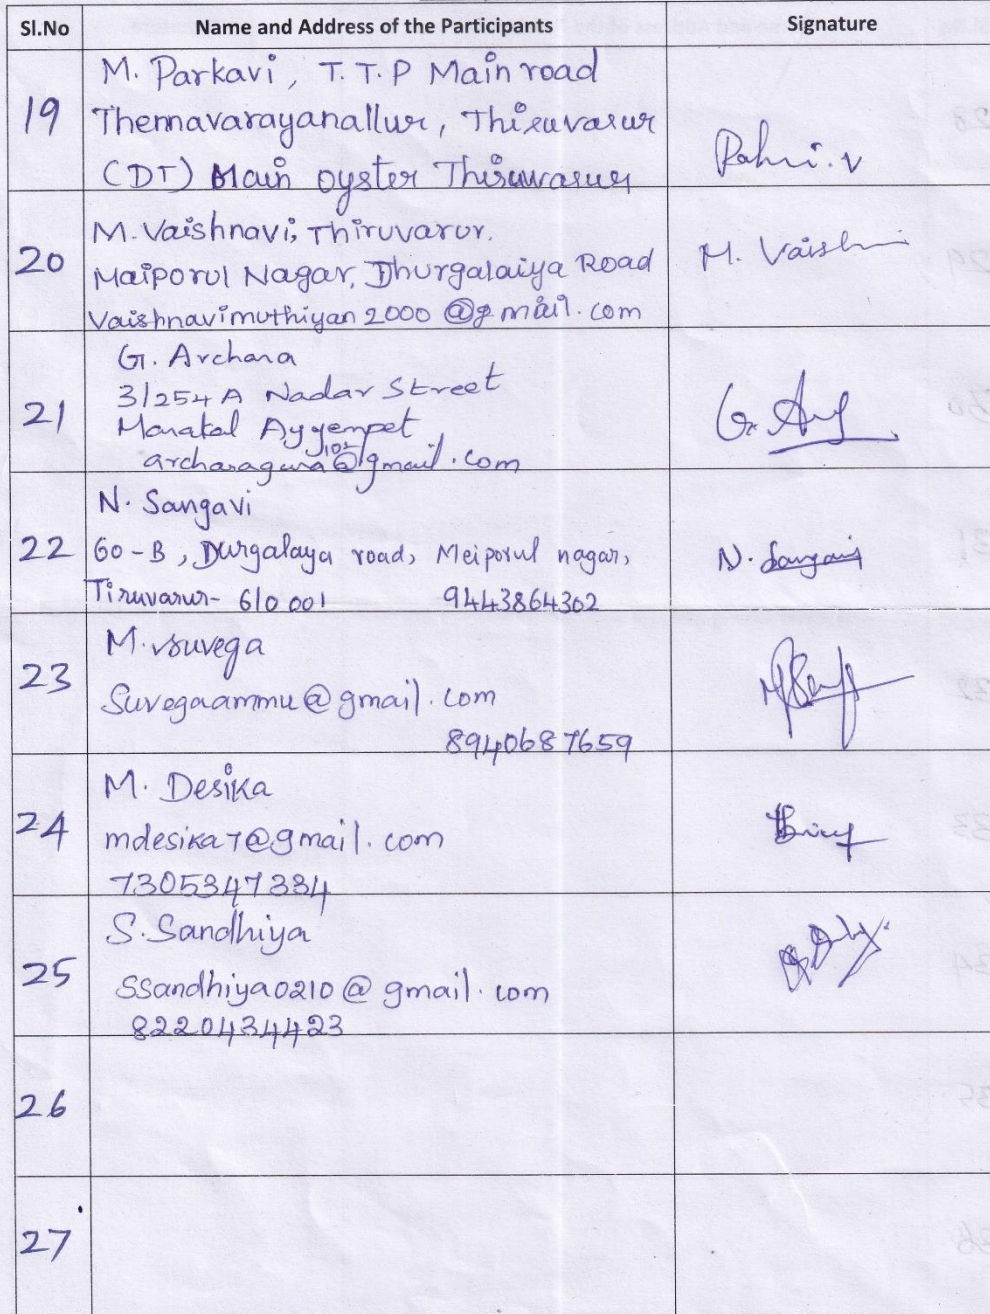 Sl.No Name and Address of the Participants Signature
19
M. Parkavi, T.T.P Main road
Thennavarayanallur, Thiruvarur
(DT) Main oyster Thiruvarur
20
M. Vaishnavi, Thiruvarur.
Maiporul Nagar, Dhurgalaiya Road
Vaishnavimuthiyan2000@gmail.com
M. Vaish
21
G. Archana
3/254 A Nadar Street
Manakal Ayyempet
@gmail.com
22
N. Sangavi
60-B, Durgalaya road, Meiporul nagar,
Tiruvarur- 610 001 9443864302
N. Sangavi
23
M. Suvega
Suvegaammu@gmail.com
8940687659
24
M. Desika
mdesika7@gmail.com
7305347334
25
S. Sandhiya
SSandhiya0210@gmail.com
8220434423
26
27